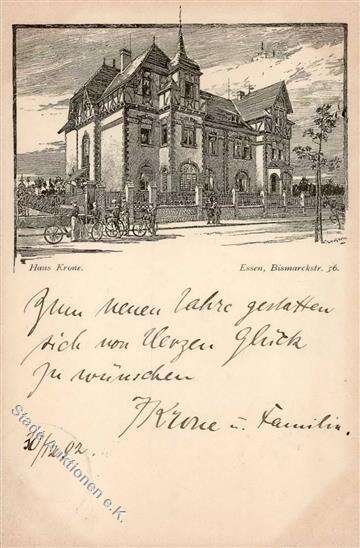 Haus Krone. Essen, Bismarckstr. 56.
Zum neuen Jahre gestatten
sich von Herzen Glück
zu wünschen
Krone u. Familie.
30/12 02.
Stade Auktionen e.K.